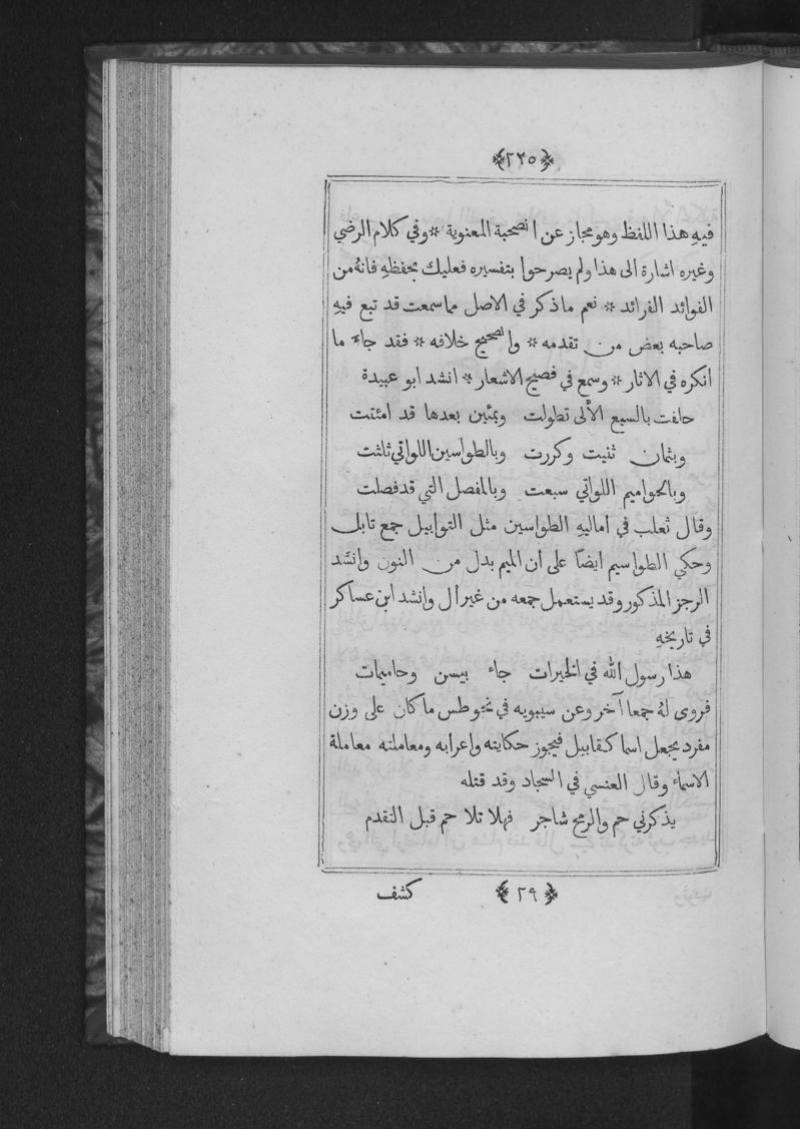 ﴿٢٢٥﴾
فيهِ هذا اللفظ وهو مجاز عن الصحبة المعنوية * وفي كلام الرضي
وغيره اشارة الى هذا ولم يصرحوا بتفسيره فعليك بحفظهِ فانهُ من
الفوائد الفرائد * نعم ما ذكر في الاصل مما سمعت قد تبع فيهِ
صاحبه بعض من تقدمه * والصحيح خلافه * فقد جاء ما
انكره في الاثار * وسمع في فصيح الاشعار * انشد ابو عبيدة
حلفت بالسبع الألى تطولت وبمئين بعدها قد امئتت
وبثمان ثنيت وكررت وبالطواسين اللواتي ثلثت
وبالحواميم اللواتي سبعت وبالمفصل التي قد فصلت
وقال ثعلب في اماليهِ الطواسين مثل التوابيل جمع تابل
وحكي الطواسيم ايضاً على ان الميم بدل من النون وانشد
الرجز المذكور وقد يستعمل جمعه من غير أل وانشد ابن عساكر
في تاريخهِ
هذا رسول الله في الخيرات جاء بيسن وحاميمات
فروى لهُ جمعا آخر وعن سيبويه في نحو طس ما كان على وزن
مفرد يجعل اسما كقابيل فيجوز حكايته واعرابه ومعاملته معاملة
الاسماء وقال العنسي في السجاد وقد قتله
يذكرني حم والرمح شاجر فهلا تلا حم قبل التقدم
﴿٢٩﴾ كشف